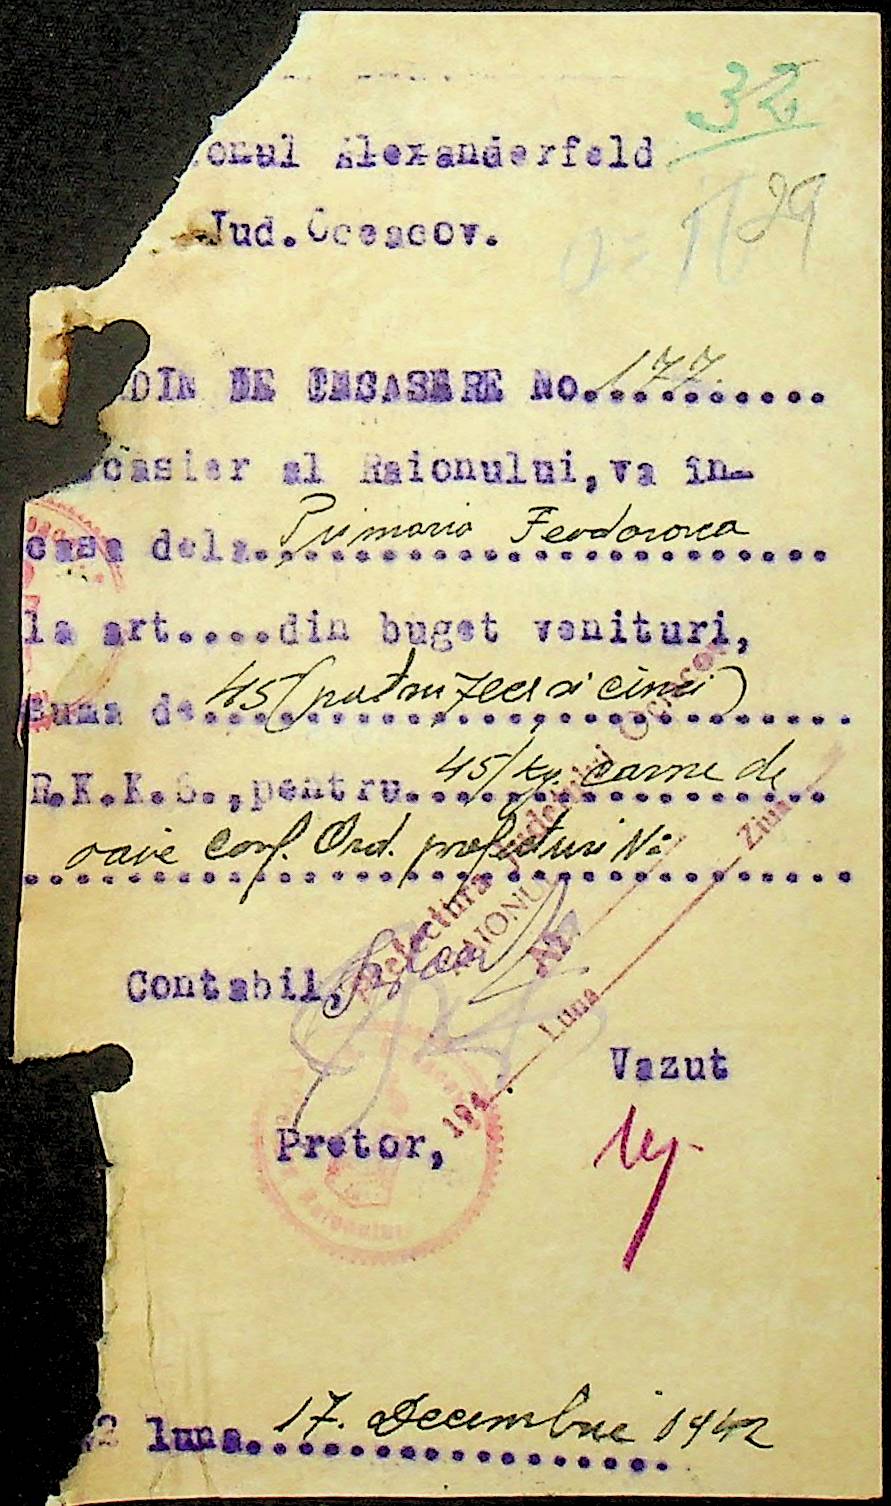 32
onul Alexanderfeld
29
Jud.Oceacov.
DIN DE INCASARE No. 177.
casier al Raionului,va în-
casa dela Primaria Feodorovca
la art....din buget venituri,
suma de 45 (patru zeci si cinci)
R.K.K.S.,pentru 45/kg. carne de
oaie conf. Ord. prefecturi No
Prefectura Judetului Oceacov
RAIONUL
No.
Ziua
Luna
194
Contabil,
Vazut
Pretor,
2 luna 17. Decembrie 1942